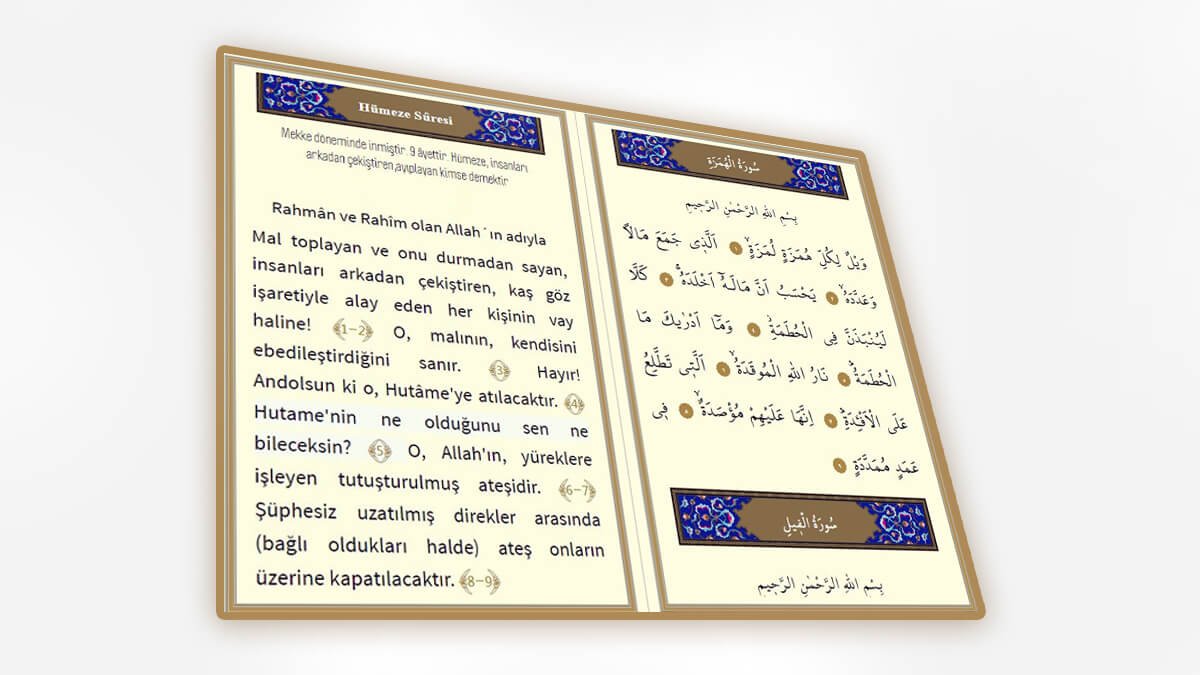 Hümeze Sûresi
Mekke döneminde inmiştir. 9 âyettir. Hümeze, insanları
arkadan çekiştiren,ayıplayan kimse demektir
Rahmân ve Rahîm olan Allah´ın adıyla
Mal toplayan ve onu durmadan sayan,
insanları arkadan çekiştiren, kaş göz
işaretiyle alay eden her kişinin vay
haline! ﴾1-2﴿ O, malının, kendisini
ebedileştirdiğini sanır. ﴾3﴿ Hayır!
Andolsun ki o, Hutâme'ye atılacaktır. ﴾4﴿
Hutame'nin ne olduğunu sen ne
bileceksin? ﴾5﴿ O, Allah'ın, yüreklere
işleyen tutuşturulmuş ateşidir. ﴾6-7﴿
Şüphesiz uzatılmış direkler arasında
(bağlı oldukları halde) ateş onların
üzerine kapatılacaktır. ﴾8-9﴿
سُورَةُ الْهُمَزَةِ
بِسْمِ اللهِ الرَّحْمٰنِ الرَّحِيمِ
وَيْلٌ لِكُلِّ هُمَزَةٍ لُمَزَةٍۙ ١ اَلَّذ۪ى جَمَعَ مَالاً
وَعَدَّدَهُۙ ٢ يَحْسَبُ اَنَّ مَالَهُٓ اَخْلَدَهُۚ ٣ كَلَّا
لَيُنْبَذَنَّ فِى الْحُطَمَةِۘ ٤ وَمَٓا اَدْرٰيكَ مَا
الْحُطَمَةُۜ ٥ نَارُ اللهِ الْمُوقَدَةُۙ ٦ اَلَّت۪ى تَطَّلِعُ
عَلَى الْاَفْـِٔدَةِۜ ٧ اِنَّهَا عَلَيْهِمْ مُؤْصَدَةٌۙ ٨ ف۪ى
عَمَدٍ مُمَدَّدَةٍ ٩
سُورَةُ الْف۪يلِ
بِسْمِ اللهِ الرَّحْمٰنِ الرَّحِيمِ